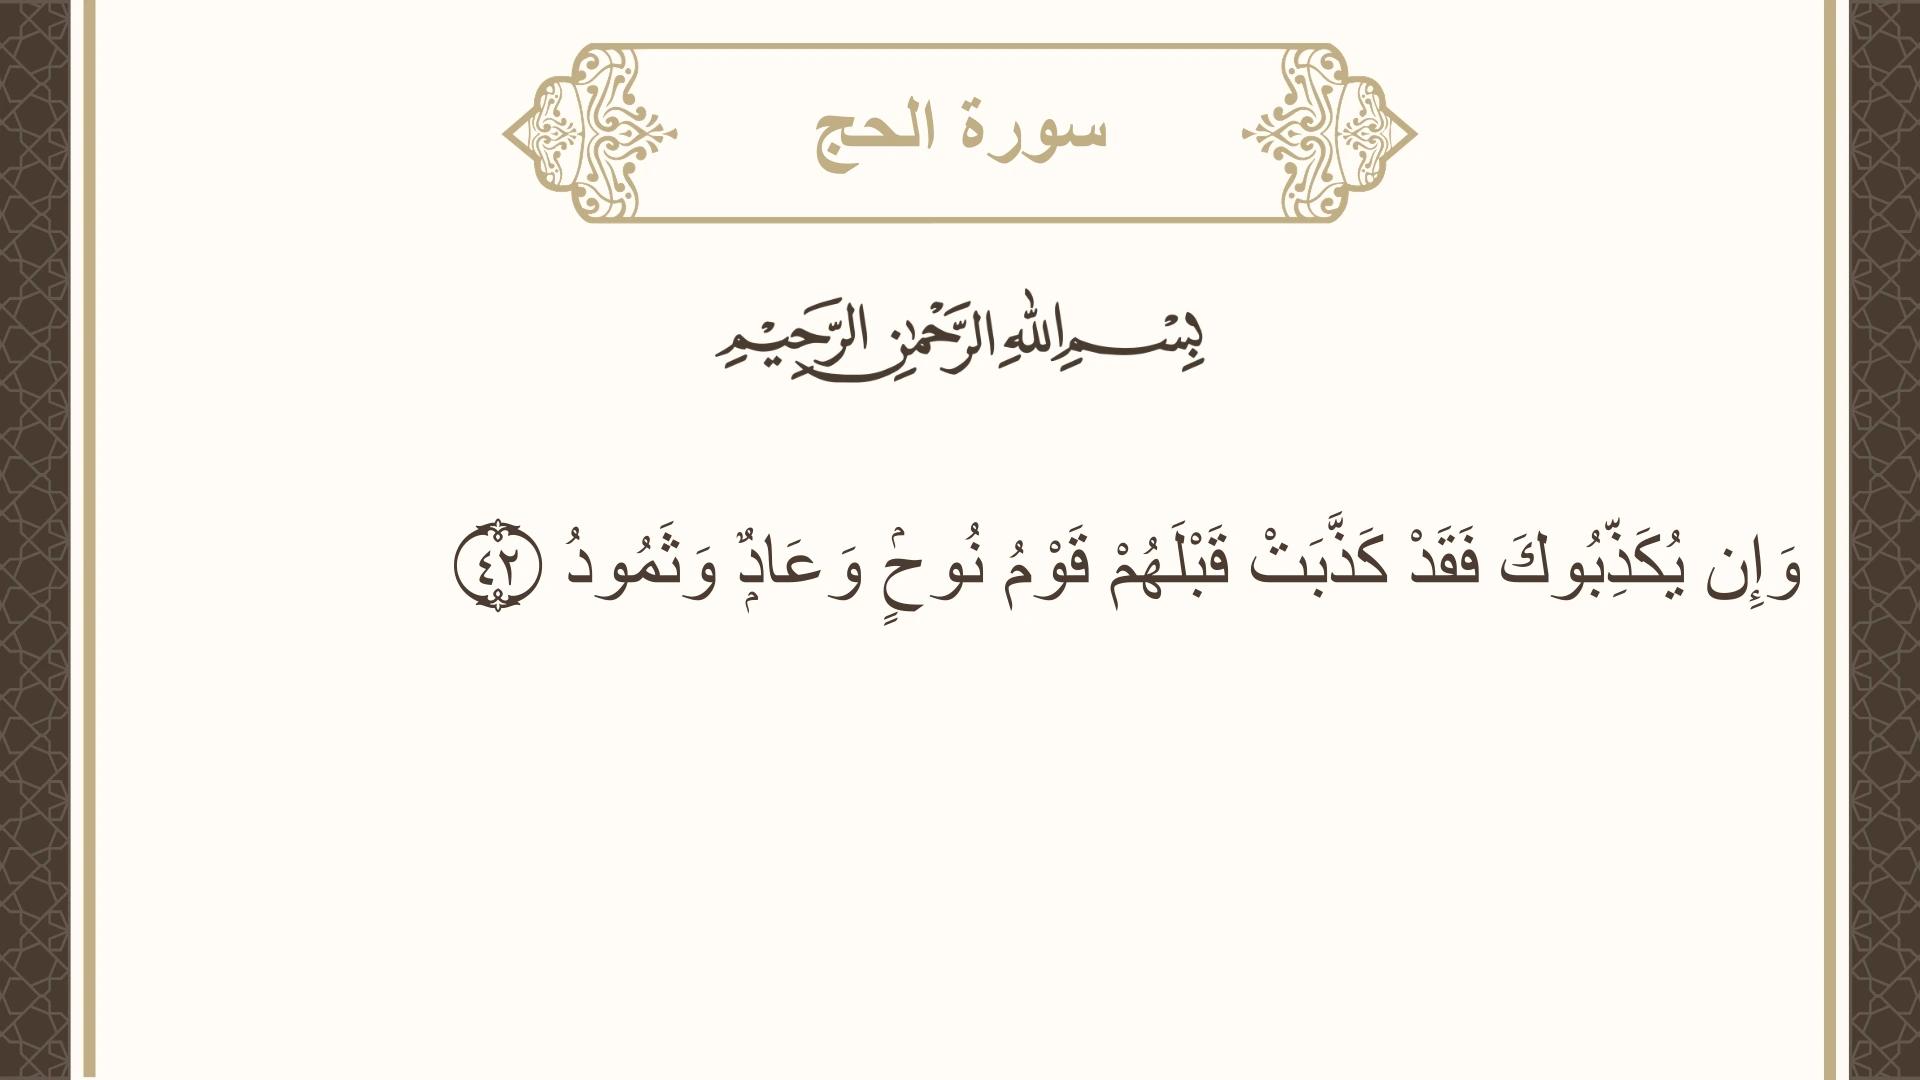 سورة الحج
بِسْمِ اللهِ الرَّحْمٰنِ الرَّحِيْمِ
وَإِن يُكَذِّبُوكَ فَقَدْ كَذَّبَتْ قَبْلَهُمْ قَوْمُ نُوحٍۢ وَعَادٌۭ وَثَمُودُ ٤٢